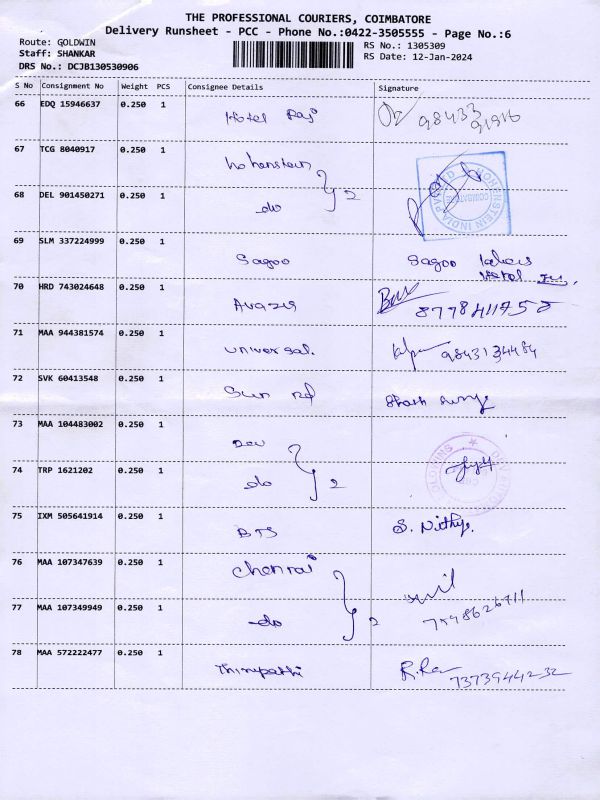 THE PROFESSIONAL COURIERS, COIMBATORE
Delivery Runsheet - PCC - Phone No.:0422-3505555 - Page No.:6
Route: GOLDWIN
Staff: SHANKAR
DRS No.: DCJB130530906
RS No.: 1305309
RS Date: 12-Jan-2024
S No Consignment No Weight PCS Consignee Details Signature
66 EDQ 15946637 0.250 1 Hotel Raj 98433
67 TCG 8040917 0.250 1 Hohenstein
HOHENSTEIN INDIA PVT LTD COIMBATORE
68 DEL 901450271 0.250 1 do 2
69 SLM 337224999 0.250 1 Sagoo Sagoo
70 HRD 743024648 0.250 1
71 MAA 944381574 0.250 1 universal. 9843134484
72 SVK 60413548 0.250 1 Sun
73 MAA 104483002 0.250 1 Dev
74 TRP 1621202 0.250 1 do 2
75 IXM 505641914 0.250 1 BTS S. Nithya.
76 MAA 107347639 0.250 1 Chennai
77 MAA 107349949 0.250 1 do 2 7598626711
78 MAA 572222477 0.250 1 Thirupathi 7373944232